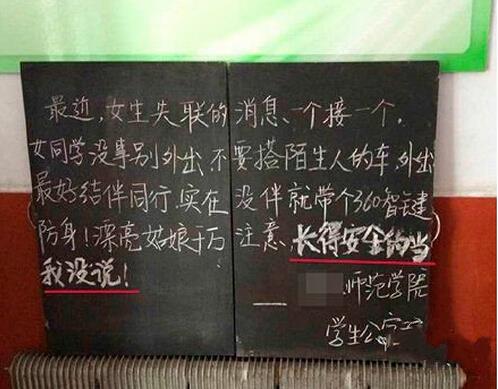 最近，女生失联的消息、一个接一个，
女同学没事别外出，不要搭陌生人的车，外出
最好结伴同行，实在没伴就带个360智键
防身！漂亮姑娘千万注意，长得安全的当
我没说！
师范学院
学生公寓